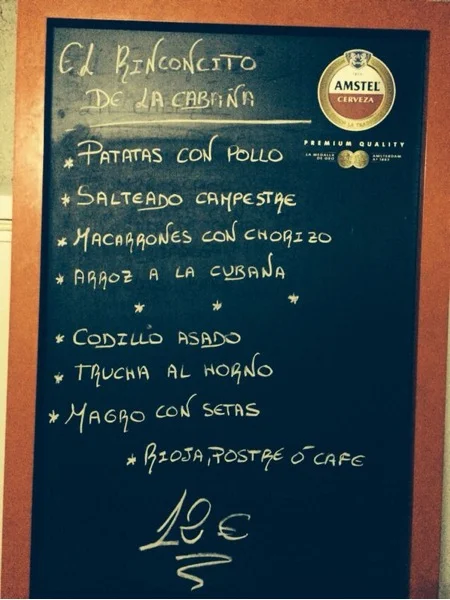 EL RINCONCITO
DE LA CABAÑA
AMSTEL
CERVEZA
PREMIUM QUALITY
LA MEDALLA DE ORO
AMSTERDAM AI 1883
* PATATAS CON POLLO
* SALTEADO CAMPESTRE
* MACARRONES CON CHORIZO
* ARROZ A LA CUBANA
* * *
* CODILLO ASADO
* TRUCHA AL HORNO
* MAGRO CON SETAS
* RIOJA, POSTRE Ó CAFE
12 €